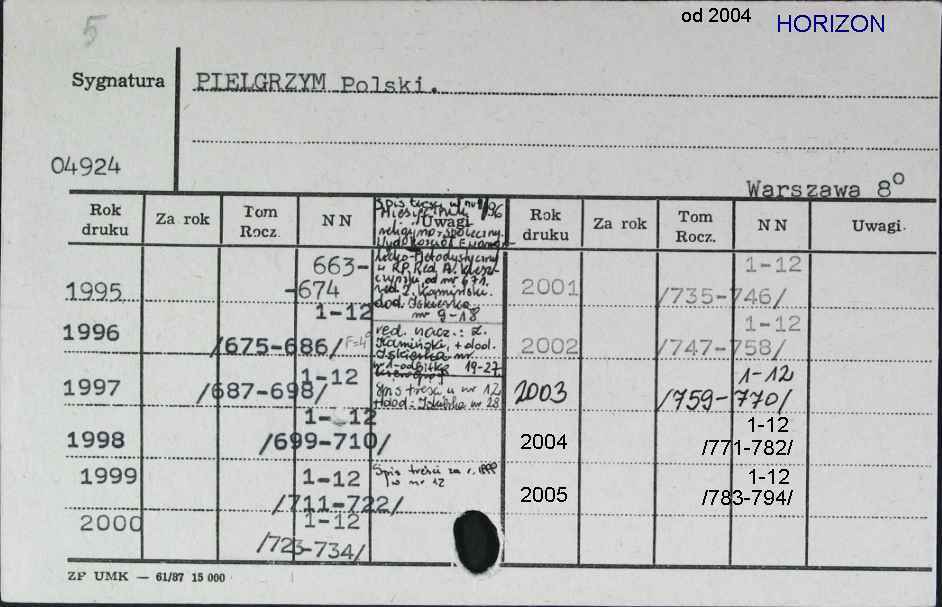 5
od 2004 HORIZON
Sygnatura
PIELGRZYM Polski.
04924
Warszawa 8°
Rok druku Za rok Tom Rocz. NN Uwagi Rok druku Za rok Tom Rocz. NN Uwagi.
Spis treści w nr 1/96
1995 663-
-674
red. Z. Kamiński.
nr 9-18
1996 1-12
/675-686/ F=4°
red. nacz.: Z.
Kamiński, + dod.
19-27
1997 1-12
/687-698/
Spis treści w nr 12
1998 1-12
/699-710/
1999 1-12
/711-722/
Spis treści za r. 1999
w nr 12
2000 1-12
/723-734/
2001 1-12
/735-746/
2002 1-12
/747-758/
2003 1-12
/759-770/
2004 1-12
/771-782/
2005 1-12
/783-794/
ZP UMK — 61/87 15 000